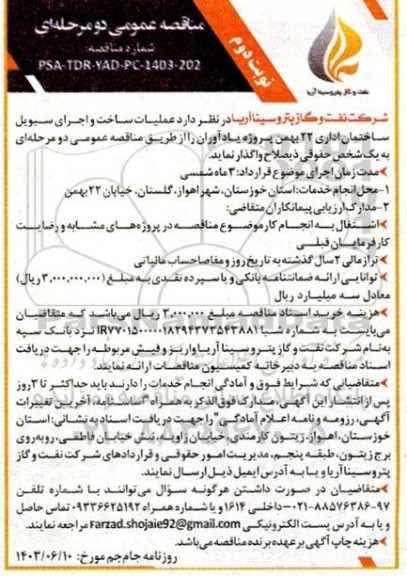 مناقصه عمومی دو مرحله‌ای
شماره مناقصه:
PSA-TDR-YAD-PC-1403-202
نوبت دوم
نفت و گاز پتروسینا آریا
شرکت نفت و گاز پتروسینا آریا در نظر دارد عملیات ساخت و اجرای سیویل
ساختمان اداری ۲۲ بهمن پروژه یادآوران را از طریق مناقصه عمومی دو مرحله‌ای
به یک شخص حقوقی ذیصلاح واگذار نماید.
*مدت زمان اجرای موضوع قرارداد: ۳ ماه شمسی
۱-محل انجام خدمات: استان خوزستان، شهر اهواز، گلستان، خیابان ۲۲ بهمن
۲-مدارک ارزیابی پیمانکاران متقاضی:
*اشتغال به انجام کار موضوع مناقصه در پروژه‌های مشابه و رضایت
کارفرمایان قبلی
*تراز مالی ۲ سال گذشته به تاریخ روز و مفاصاحساب مالیاتی
*توانایی ارائه ضمانتنامه بانکی و یا سپرده نقدی به مبلغ (۳,۰۰۰,۰۰۰,۰۰۰ ریال)
معادل سه میلیارد ریال
*هزینه خرید اسناد مناقصه مبلغ ۳,۰۰۰,۰۰۰ ریال می‌باشد که متقاضیان
می‌بایست به شماره شبا نزد بانک سپه
به نام شرکت نفت و گاز پتروسینا آریا واریز و فیش مربوطه را جهت دریافت
اسناد مناقصه به دبیرخانه کمیسیون مناقصات ارائه نمایند.
*متقاضیانی که شرایط فوق و آمادگی انجام خدمات را دارند باید حداکثر تا ۳ روز
پس از انتشار این آگهی، مدارک فوق الذکر به همراه "اساسنامه، آخرین تغییرات
آگهی، رزومه و نامه اعلام آمادگی" را جهت دریافت اسناد به نشانی: استان
خوزستان، اهواز، زیتون کارمندی، خیابان زاویه، نبش خیابان فاطمی، روبه‌روی
برج زیتون، طبقه پنجم، مدیریت امور حقوقی و قراردادهای شرکت نفت و گاز
پتروسینا آریا و یا به آدرس ایمیل ذیل ارسال نمایند.
*متقاضیان در صورت داشتن هرگونه سؤال می‌توانند با شماره تلفن
۰۲۱-۸۸۵۷۶۳۸۶-۹۷ داخلی ۱۶۱۴ و یا شماره همراه ۰۹۳۳۶۶۲۵۱۹۲ تماس حاصل
و یا به آدرس پست الکترونیکی Farzad.shojaie92@gmail.com مراجعه نمایند.
*هزینه چاپ آگهی بر عهده برنده مناقصه می‌باشد.
روزنامه جام جم مورخ: ۱۴۰۳/۰۶/۱۰